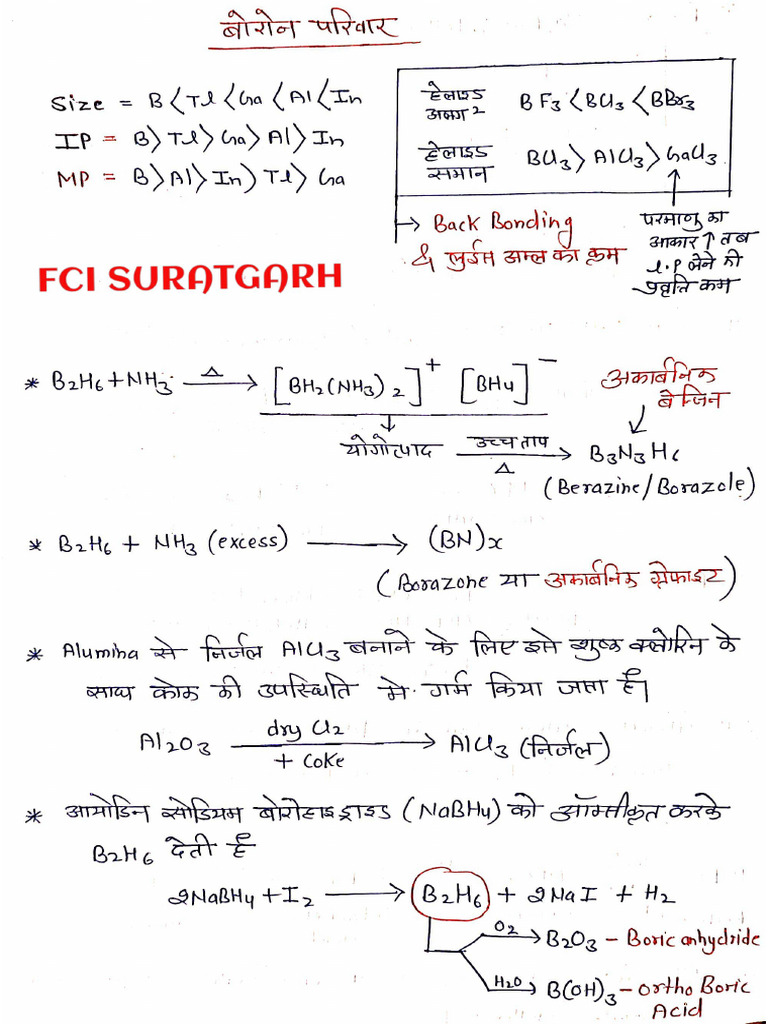 बोरोन परिवार
Size = B < Tl < Ga < Al < In
IP = B > Tl > Ga > Al > In
MP = B > Al > In > Tl > Ga
हेलाइड अलग 2 BF3 < BCl3 < BBr3
हेलाइड समान BCl3 > AlCl3 > GaCl3
→ Back Bonding
& लुईस अम्ल का क्रम
परमाणु का
आकार ↑ तब
l.p लेने की
प्रवृति कम
FCI SURATGARH
* B2H6 + NH3 —Δ→ [BH2(NH3)2]+ [BH4]−
अकार्बनिक
बेन्जिन
योगोत्पाद —उच्च ताप Δ→ B3N3H6
(Berazine/Borazole)
* B2H6 + NH3 (excess) → (BN)x
(Borazone या अकार्बनिक ग्रेफाइट)
* Alumina से निर्जल AlCl3 बनाने के लिए इसे शुष्क क्लोरिन के
साथ कोक की उपस्थिति मे गर्म किया जाता है।
Al2O3 —dry Cl2 + Coke→ AlCl3 (निर्जल)
* आयोडिन सोडियम बोरोहाइड्राइड (NaBH4) को ऑक्सीकृत करके
B2H6 देती है
2NaBH4 + I2 → B2H6 + 2NaI + H2
O2 → B2O3 - Boric anhydride
H2O → B(OH)3 - ortho Boric
Acid